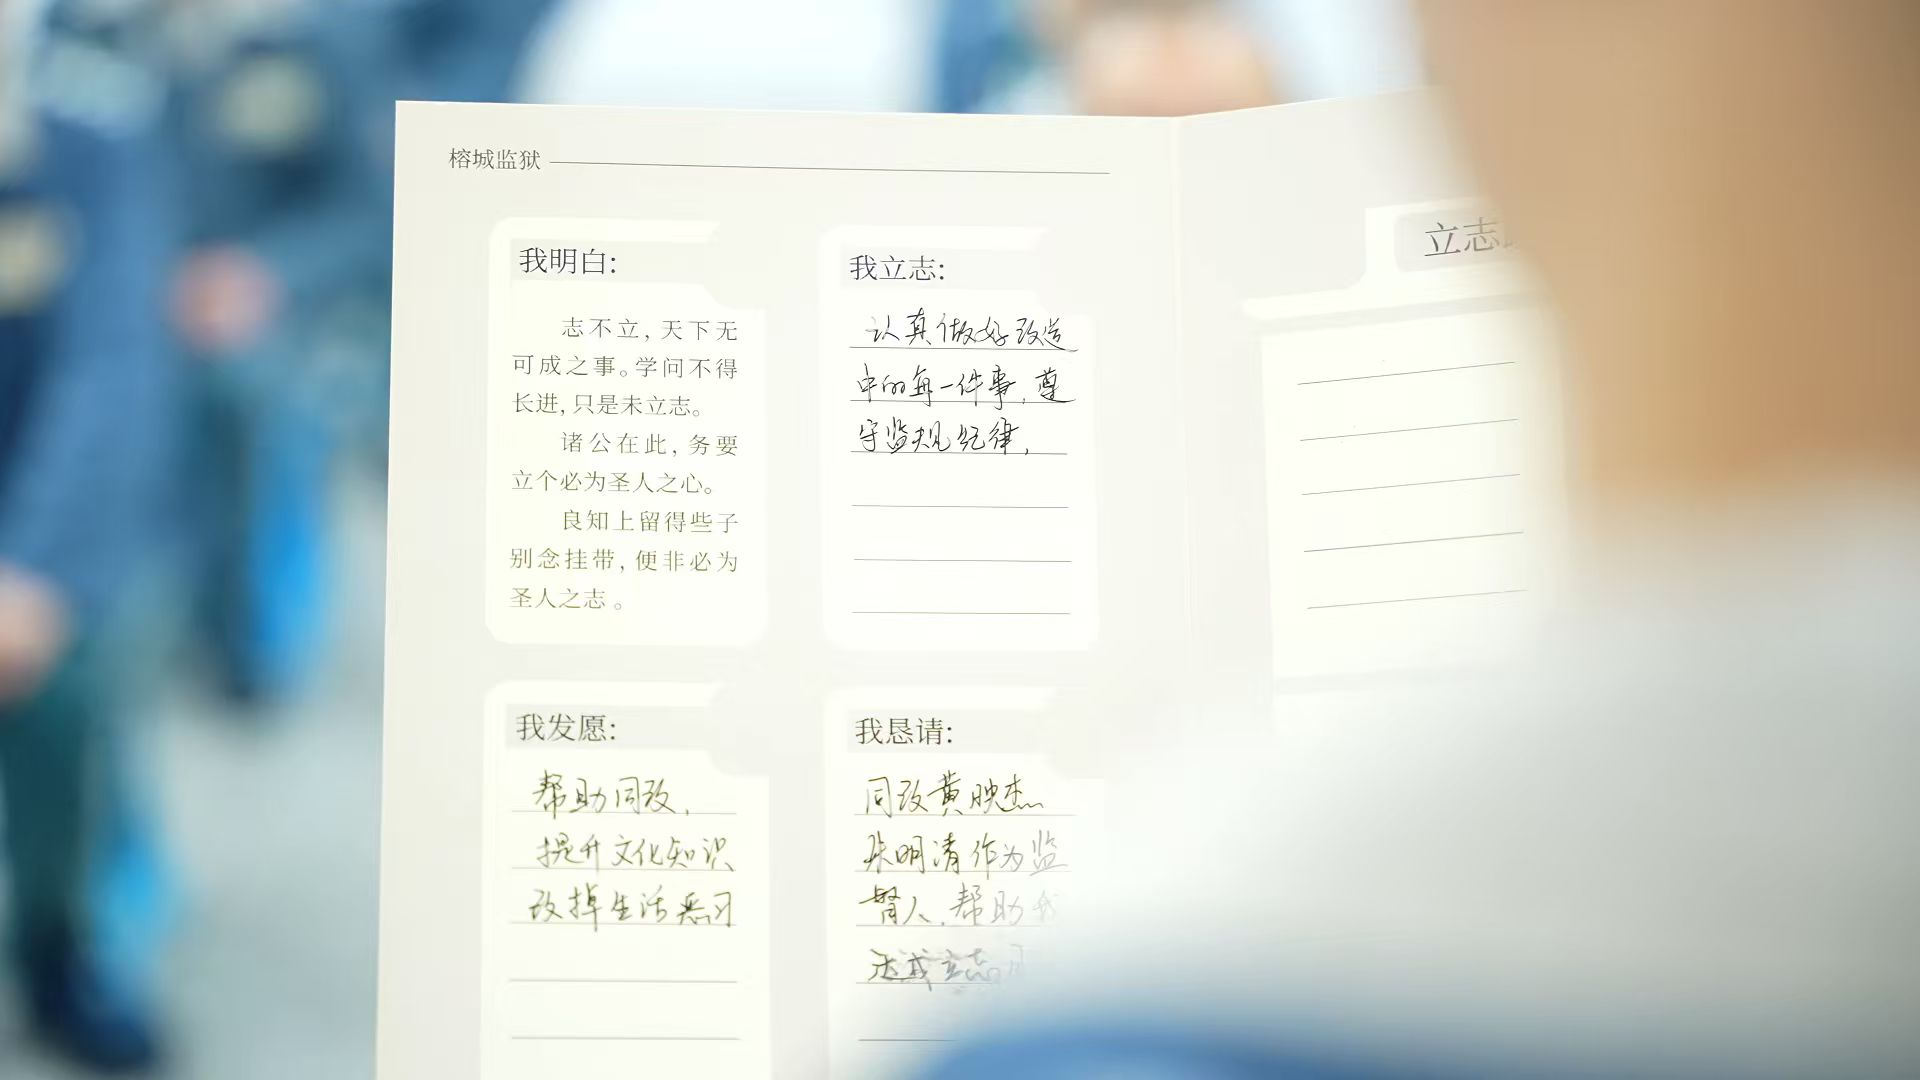 榕城监狱
我明白:
志不立,天下无
可成之事。学问不得
长进,只是未立志。
诸公在此,务要
立个必为圣人之心。
良知上留得些子
别念挂带,便非必为
圣人之志。
我立志:
认真做好改造
中的每一件事,遵
守监规纪律,
我发愿:
帮助同改,
提升文化知识
改掉生活恶习
我恳请:
同改黄映杰
朱明清作为监
督人,帮助我
达成立志
立志